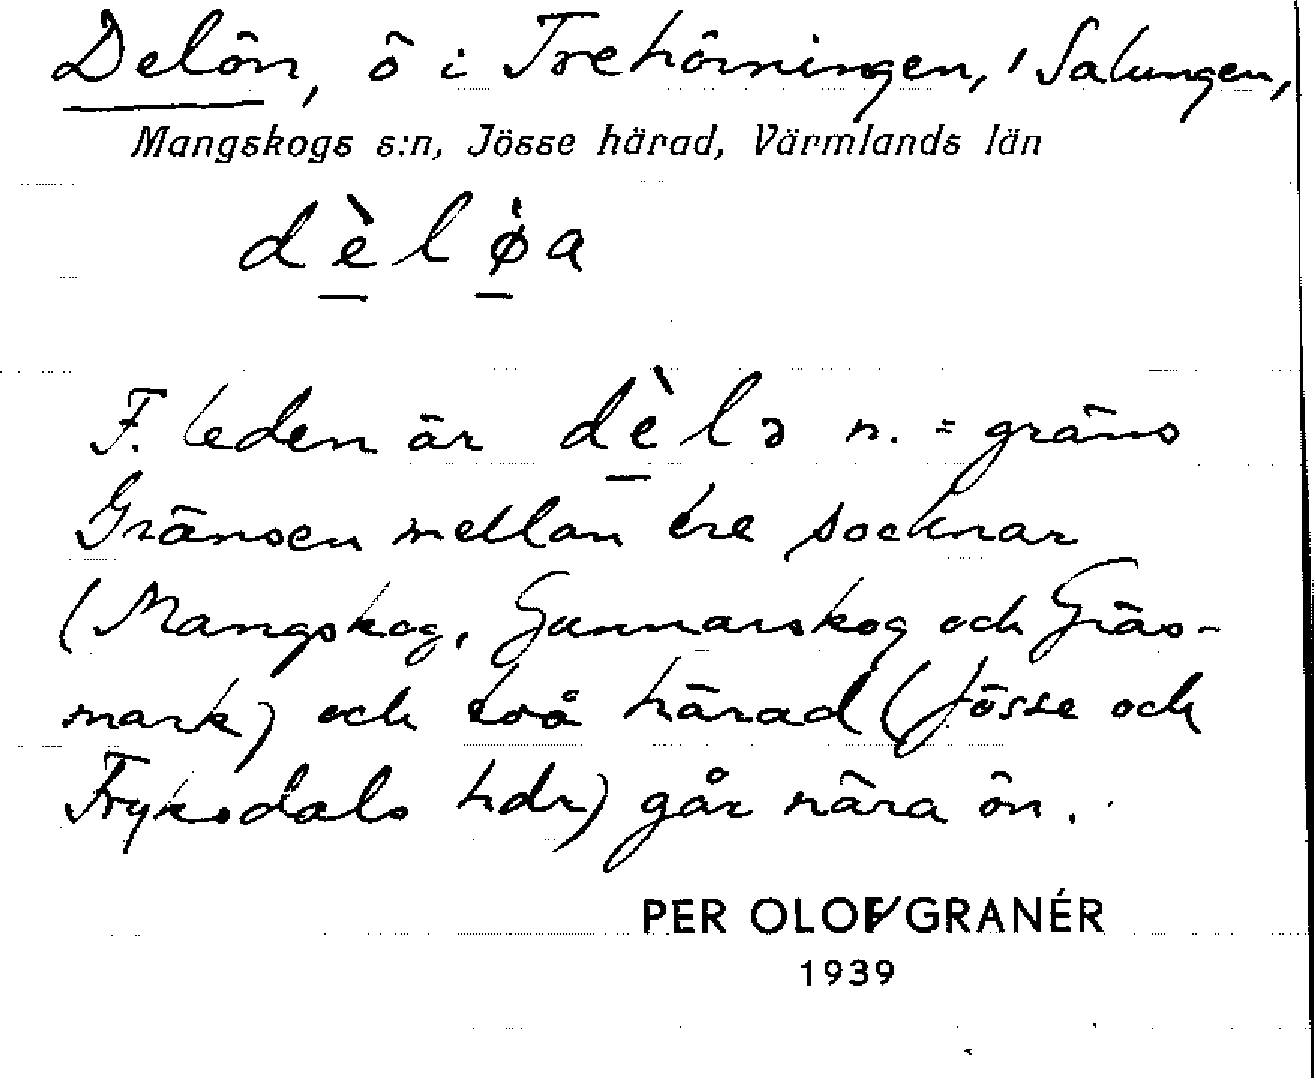 Delön, ö i Trehörningen, i Salungen,
Mangskogs s:n, Jösse härad, Värmlands län
dèløa
F. leden är dèlə n. = gräns
Gränsen mellan tre socknar
(Mangskog, Gunnarskog och Gräs-
mark) och två härad (Jösse och
Fryksdals hdr) går nära ön.
PER OLOF GRANÉR
1939